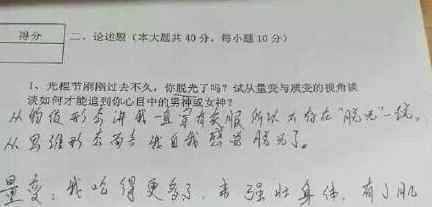 得分
二、论述题（本大题共40分，每小题10分）
1、光棍节刚刚过去不久，你脱光了吗？试从量变与质变的视角谈
谈如何才能追到你心目中的男神或女神？
从物质形态讲我一直穿有衣服所以不存在"脱光"一说。
从思维形态而言我自我感觉脱光了。
量变：我吃得更多了，来强壮身体，有了肌